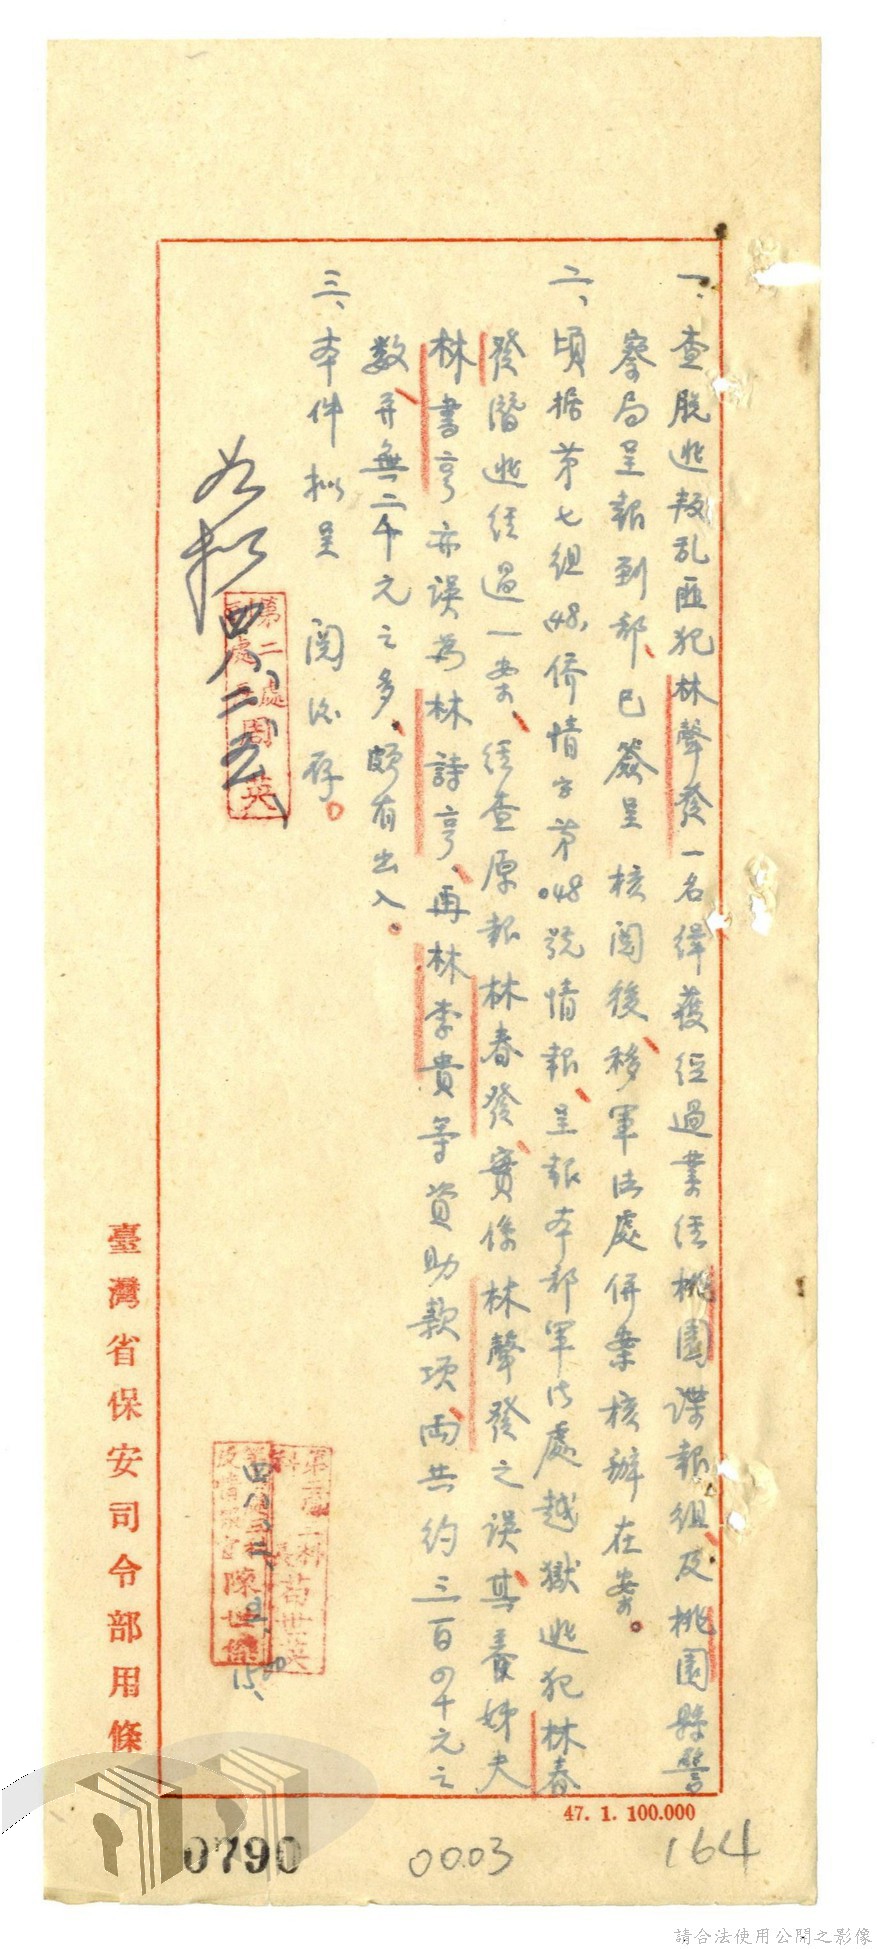 一、查脫逃叛乱匪犯林聲發一名緝獲經過業經桃園諜報組、及桃園縣警
察局呈報到部、已簽呈　核閱後、移軍法處併案核辦在案。
二、頃据第七組(48)僑情字第048號情報、呈報本部軍法處越獄逃犯林春
發潛逃経過一案、経查原報林春發、實係林聲發之誤、其養姊夫
林書亨亦誤為林詩亨、再林李貴等資助款項、兩共約三百四十元之
数、并無二千元之多、頗有出入。
三、本件擬呈　閱後存。
如擬
第二處
副處長周英
四八、二、
第二處二科
科長苟世英
陳世傑
四八、二、
1500
臺灣省保安司令部用條
47. 1. 100.000
0790
0003
164
請合法使用公開之影像